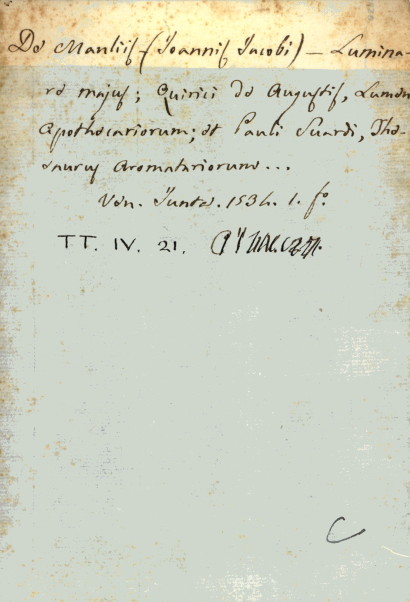 De Manliis (Joannis Jacobi) – Lumina-
re majus; Quirici de Augustis, Lumen
Apothecariorum; et Pauli Suardi, The-
saurus Aromatariorum...
Ven. Junta. 1534. 1. fo.
TT. IV. 21.
C